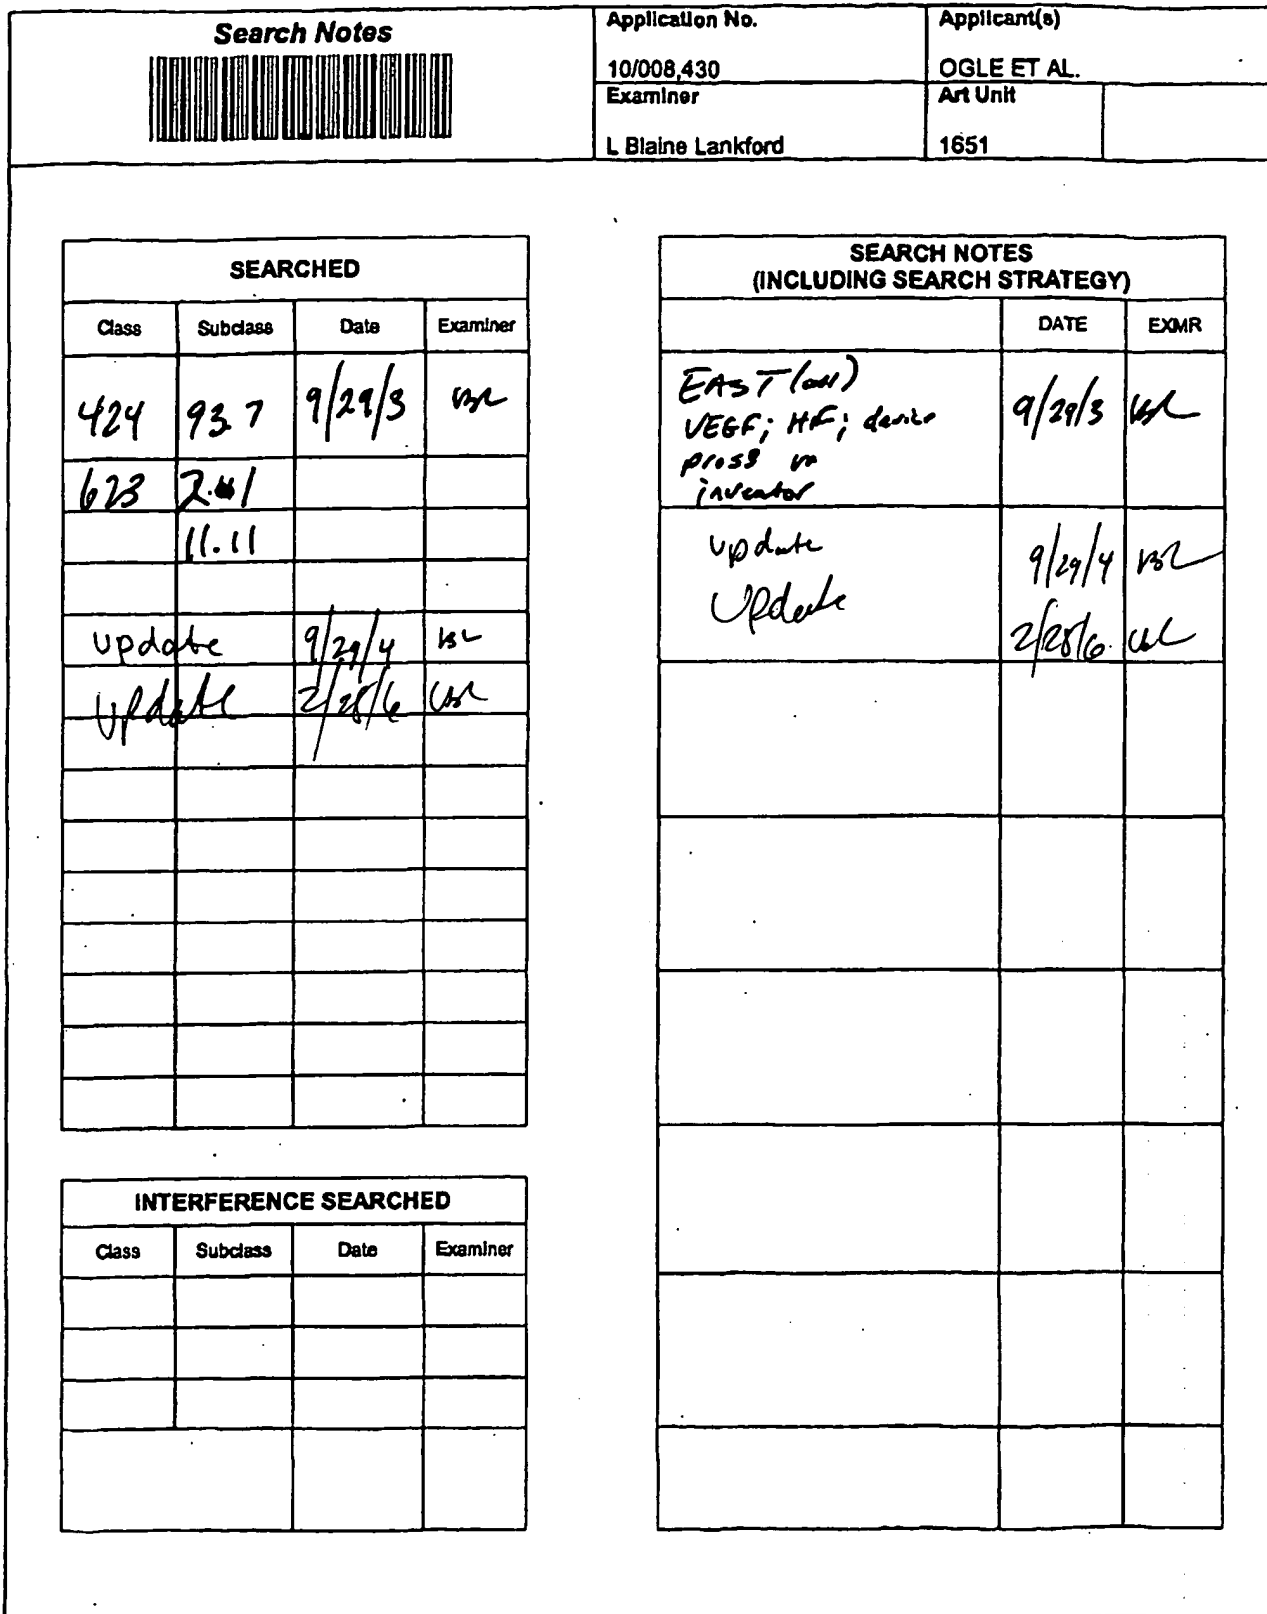 Search Notes
Application No.
10/008,430
Applicant(s)
OGLE ET AL.
Examiner
L Blaine Lankford
Art Unit
1651
SEARCHED
Class Subclass Date Examiner
424 93.7 9/29/3
623
11.11
update 9/29/4
Update 2/28/6
INTERFERENCE SEARCHED
Class Subclass Date Examiner
SEARCH NOTES
(INCLUDING SEARCH STRATEGY)
DATE EXMR
EAST (all) 9/29/3
VEGF; HF; device
inventor
update 9/29/4
Update 2/28/6